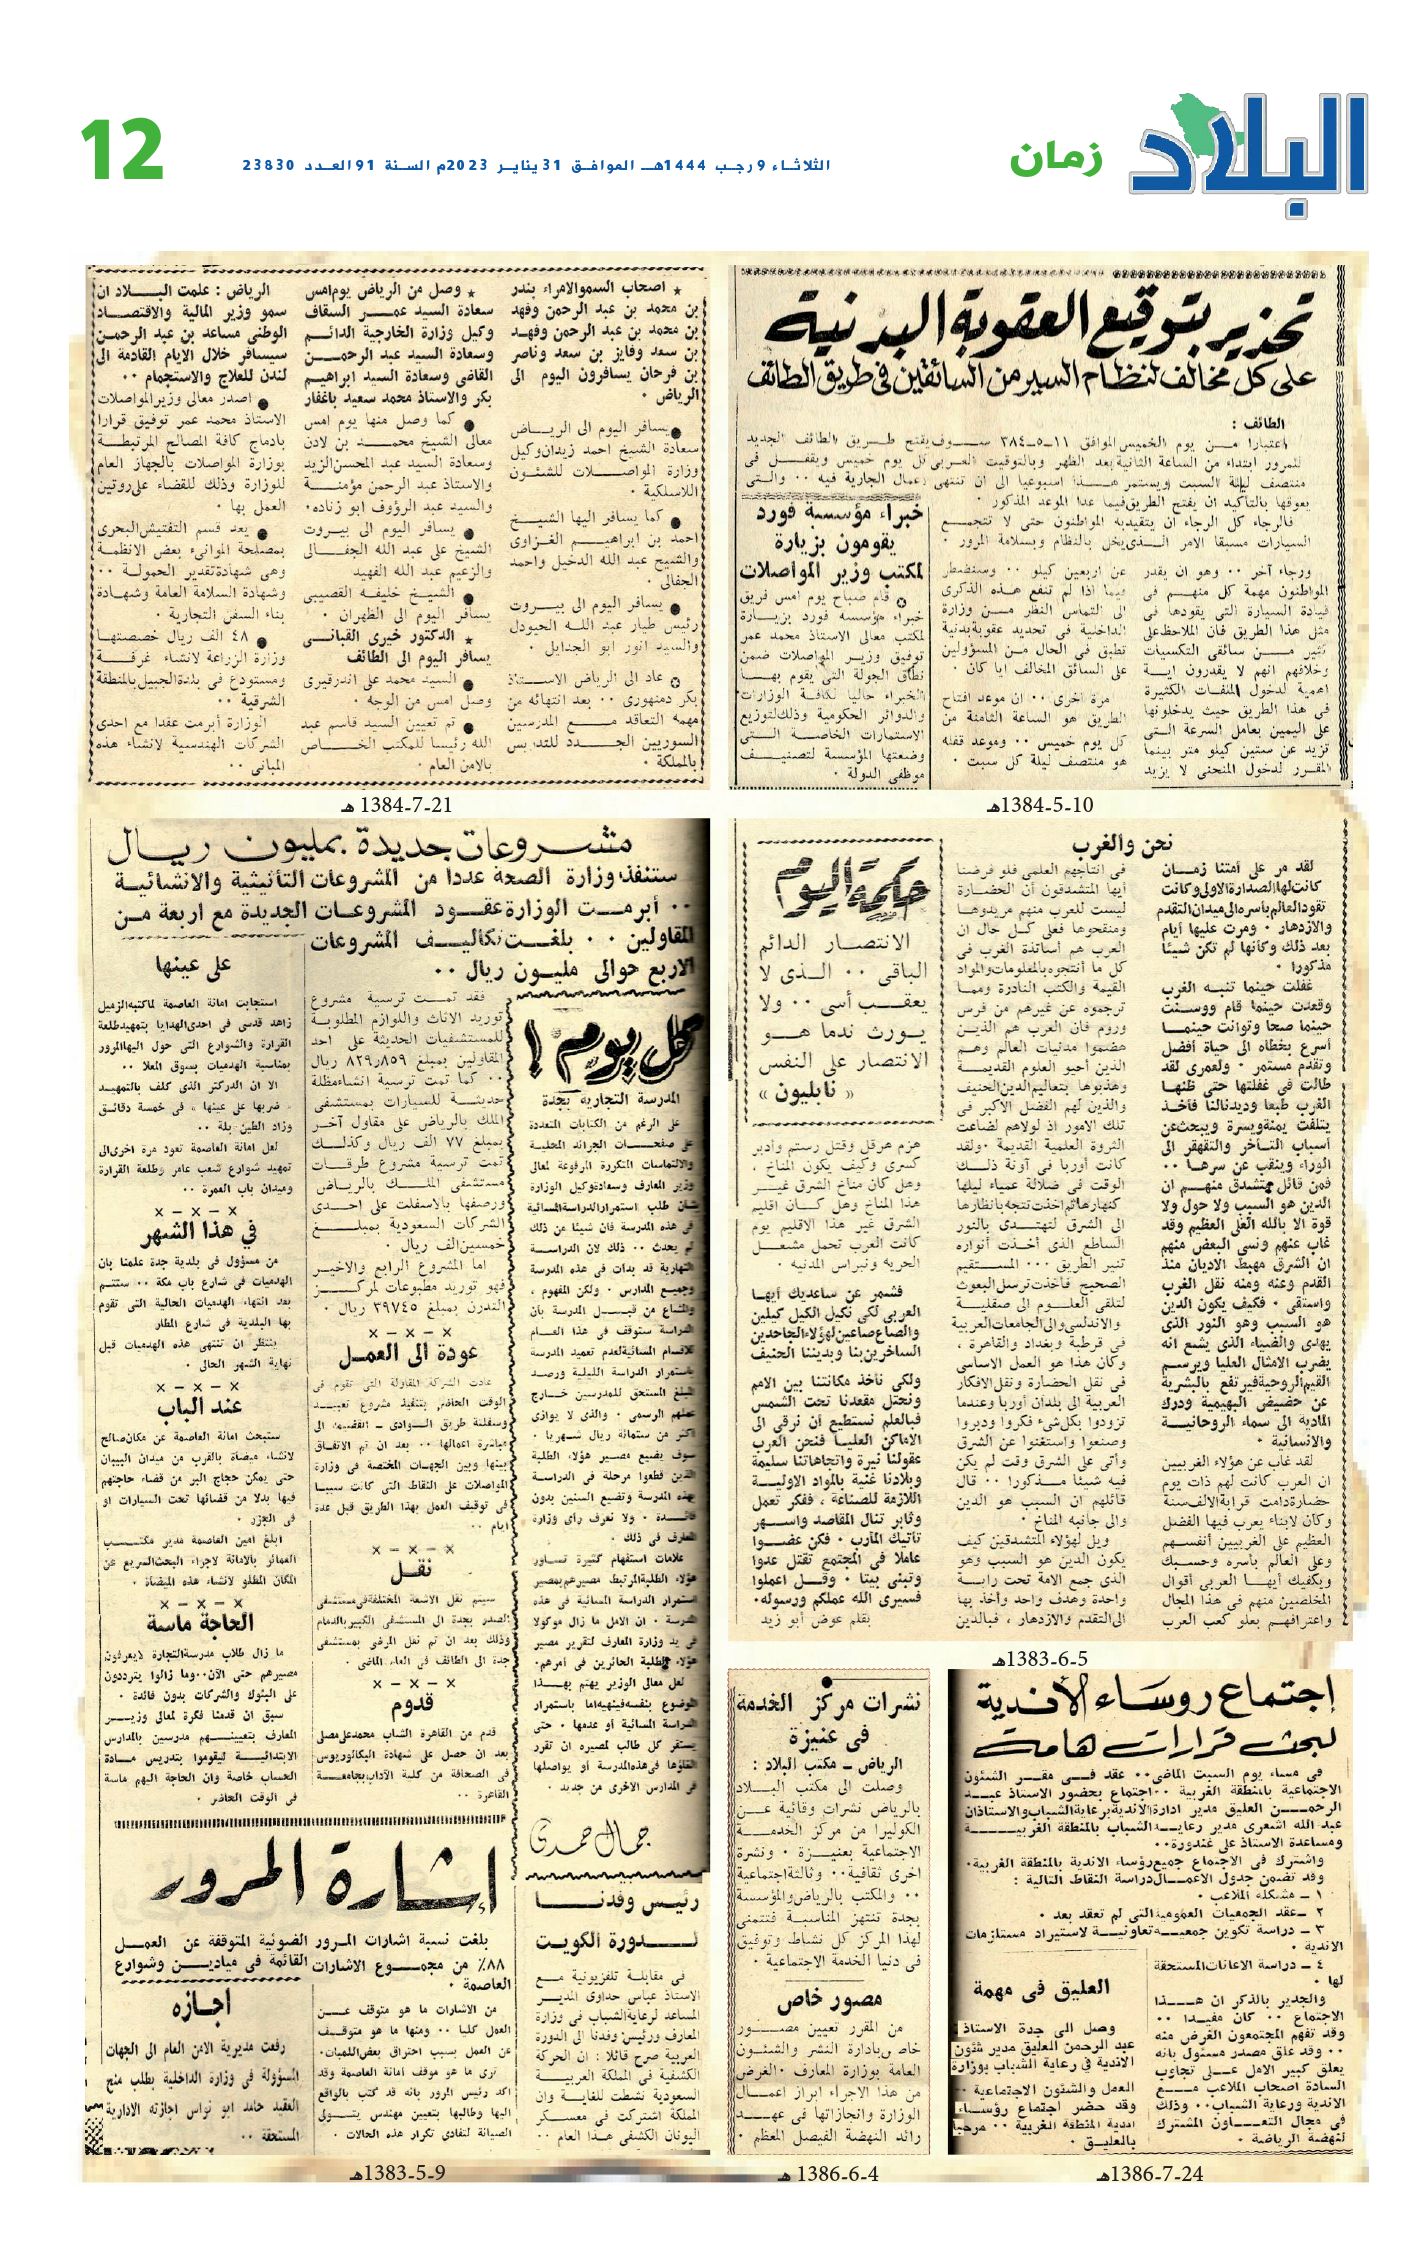 البلاد
زمان
الثلاثاء 9 رجب 1444هـ الموافق 31 يناير 2023م السنة 91 العدد 23830
12
تحذير بتوقيع العقوبة البدنية
على كل مخالف لنظام السير من السائقين في طريق الطائف
الطائف :
اعتبارا من يوم الخميس الموافق ١١-٥-٣٨٤ سوف يفتح طريق الطائف الجديد
للمرور ابتداء من الساعة الثانية بعد الظهر وبالتوقيت العربي كل يوم خميس ويقفل في
منتصف ليلة السبت ويستمر هذا اسبوعيا الى ان تنتهي اعمال الجارية فيه ٠٠ والتى
يعوقها بالتأكيد ان يفتح الطريق فيما عدا الموعد المذكور ٠
فالرجاء كل الرجاء ان يتقيد به المواطنون حتى لا تتجمع
السيارات مسبقا الامر الذى يخل بالنظام وبسلامة المرور ٠
ورجاء آخر ٠٠ وهو ان يقدر
المواطنون مهمة كل منهم فى
قيادة السيارة التى يقودها فى
مثل هذا الطريق فان الملاحظ على
كثير من سائقى التكسيات
وخلافهم انهم لا يقدرون اية
اهمية لدخول المنفات الكثيرة
فى هذا الطريق حيث يدخلونها
على اليمين بعامل السرعة التى
تزيد عن ستين كيلو متر بينما
المقرر لدخول المنحنى لا يزيد
عن اربعين كيلو ٠٠ وسنضطر
فيما اذا لم تنفع هذه الذكرى
الى التماس النظر من وزارة
الداخلية فى تحديد عقوبة بدنية
تطبق فى الحال من المسؤولين
على السائق المخالف ايا كان ٠
مرة اخرى ٠٠ ان موعد افتتاح
الطريق هو الساعة الثامنة من
كل يوم خميس ٠٠ وموعد قفله
هو منتصف ليلة كل سبت ٠
خبراء مؤسسة فورد
يقومون بزيارة
لمكتب وزير المواصلات
قام صباح يوم امس فريق
خبراء مؤسسة فورد بزيارة
لمكتب معالى الاستاذ محمد عمر
توفيق وزير المواصلات ضمن
نطاق الجولة التى يقوم بها
الخبراء حاليا لكافة الوزارات
والدوائر الحكومية وذلك لتوزيع
الاستمارات الخاصة التى
وضعتها المؤسسة لتصنيف
موظفى الدولة ٠
1384-5-10هـ
★ اصحاب السمو الامراء بندر
بن محمد بن عبد الرحمن وفهد
بن محمد بن عبد الرحمن وفهد
بن سعد وفايز بن سعد وناصر
بن فرحان يسافرون اليوم الى
الرياض ٠
● يسافر اليوم الى الرياض
سعادة الشيخ احمد زيدان وكيل
وزارة المواصلات للشئون
اللاسلكية ٠
● كما يسافر اليها الشيخ
احمد بن ابراهيم الغزاوى
والشيخ عبد الله الدخيل واحمد
الجفالى ٠
● يسافر اليوم الى بيروت
رئيس طيار عبد الله الحيودل
والسيد انور ابو الجدايل ٠
عاد الى الرياض الاستاذ
بكر دمنهورى ٠٠ بعد انتهائه من
مهمة التعاقد مع المدرسين
السوريين الجدد للتدريس
بالمملكة ٠
★ وصل من الرياض يوم امس
سعادة السيد عمر السقاف
وكيل وزارة الخارجية الدائم
وسعادة السيد عبد الرحمن
القاضى وسعادة السيد ابراهيم
بكر والاستاذ محمد سعيد باغفار
● كما وصل منها يوم امس
معالى الشيخ محمد بن لادن
وسعادة السيد عبد المحسن الزيد
والاستاذ عبد الرحمن مؤمنة
والسيد عبد الرؤوف ابو زناده٠
● يسافر اليوم الى بيروت
الشيخ على عبد الله الجفالى
والزعيم عبد الله الفهيد
● الشيخ خليفه القصيبى
يسافر اليوم الى الظهران ٠
★ الدكتور خيرى القبانى
يسافر اليوم الى الطائف
● السيد محمد على اندرقيرى
وصل امس من الوجه ٠
● تم تعيين السيد قاسم عبد
الله رئيسا للمكتب الخاص
بالامن العام ٠
الرياض : علمت البلاد ان
سمو وزير المالية والاقتصاد
الوطنى مساعد بن عبد الرحمن
سيسافر خلال الايام القادمة الى
لندن للعلاج والاستجمام ٠٠
● اصدر معالى وزير المواصلات
الاستاذ محمد عمر توفيق قرارا
بادماج كافة المصالح المرتبطة
بوزارة المواصلات بالجهاز العام
للوزارة وذلك للقضاء على روتين
العمل بها ٠
● يعد قسم التفتيش البحرى
بمصلحة الموانىء بعض الانظمة
وهى شهادة تقدير الحمولة ٠٠
وشهادة السلامة العامة وشهادة
بناء السفن التجارية ٠
● ٤٨ الف ريال خصصتها
وزارة الزراعة لانشاء غرفة
ومستودع فى بلدة الجبيل بالمنطقة
الشرقية ٠٠
الوزارة أبرمت عقدا مع احدى
الشركات الهندسية لانشاء هذه
المبانى ٠٠
1384-7-21 هـ
نحن والغرب
لقد مر على أمتنا زمان
كانت لها الصدارة الاولى وكانت
تقود العالم بأسره الى ميدان التقدم
والازدهار ٠ ومرت عليها أيام
بعد ذلك وكأنها لم تكن شيئا
مذكورا ٠
غفلت حينما تنبه الغرب
وقعدت حينما قام ووسنت
حينما صحا وتوانت حينما
أسرع بخطاه الى حياة أفضل
وتقدم مستمر ٠ ولعمرى لقد
طالت فى غفلتها حتى ظنها
الغرب طبعا وديدنا لنا فأخذ
يتلفت يمنة ويسرة ويبحث عن
أسباب التأخر والتقهقر الى
الوراء وينقب عن سرها ٠٠
فمن قائل متشدق منهم ان
الدين هو السبب ولا حول ولا
قوة الا بالله العلى العظيم وقد
غاب عنهم ونسى البعض منهم
ان الشرق مهبط الاديان منذ
القدم وعنه ومنه نقل الغرب
واستقى ٠ فكيف يكون الدين
هو السبب وهو النور الذى
يهدى والضياء الذى يشع انه
يضرب الامثال العليا ويرسم
القيم الروحية فيرتفع بالبشرية
عن حضيض البهيمية ودرك
المادية الى سماء الروحانية
والانسانية ٠
لقد غاب عن هؤلاء الغربيين
ان العرب كانت لهم ذات يوم
حضارة دامت قرابة الالف سنة
وكان لابناء يعرب فيها الفضل
العظيم على الغربيين أنفسهم
وعلى العالم بأسره وحسبك
ويكفيك أيها العربى أقوال
المخلصين منهم فى هذا المجال
واعترافهم بعلو كعب العرب
فى انتاجهم العلمى فلو فرضنا
أيها المتشدقون أن الحضارة
ليست للعرب منهم مريدوها
ومنقحوها فعلى كل حال ان
العرب هم أساتذة الغرب فى
كل ما أنتجوه بالمعلومات والمواد
القيمة والكتب النادرة ومما
ترجموه عن غيرهم من فرس
وروم فان العرب هم الذين
هضموا مدنيات العالم وهم
الذين أحيو العلوم القديمة
وهذبوها بتعاليم الدين الحنيف
والذين لهم الفضل الاكبر فى
تلك الامور اذ لولاهم لضاعت
الثروة العلمية القديمة ٠ ولقد
كانت أوربا فى آونة ذلك
الوقت فى ضلالة عمياء ليلها
كنهارها ثم اخذت تتجه بانظارها
الى الشرق لتهتدى بالنور
الساطع الذى أخذت أنواره
تنير الطريق ٠٠٠ المستقيم
الصحيح فأخذت ترسل البعوث
لتلقى العلوم الى صقلية
والاندلسى والى الجامعات العربية
فى قرطبة وبغداد والقاهرة ،
وكان هذا هو العمل الاساسى
فى نقل الحضارة ونقل الافكار
العربية الى بلدان أوربا وعندما
تزودوا بكل شىء فكروا ودبروا
وصنعوا واستغنوا عن الشرق
وأتى على الشرق وقت لم يكن
فيه شيئا مذكورا ٠٠ قال
قائلهم ان السبب هو الدين
والى جانبه المناخ ٠
ويل لهؤلاء المتشدقين كيف
يكون الدين هو السبب وهو
الذى جمع الامة تحت راية
واحدة وهدف واحد وأخذ بها
الى التقدم والازدهار ، فبالدين
حكمة اليوم
الانتصار الدائم
الباقى ٠٠ الذى لا
يعقب أسى ٠٠ ولا
يورث ندما هو
الانتصار على النفس
« نابليون »
هزم هرقل وقتل رستم وأدبر
كسرى وكيف يكون المناخ ،
وهل كان مناخ الشرق غير
هذا المناخ وهل كان اقليم
الشرق غير هذا الاقليم يوم
كانت العرب تحمل مشعل
الحرية ونبراس المدنيه ٠
فشمر عن ساعديك أيها
العربى لكى نكيل الكيل كيلين
والصاع صاعين لهؤلاء الجاحدين
الساخرين بنا وبديننا الحنيف
ولكى نأخذ مكانتنا بين الامم
ونحتل مقعدنا تحت الشمس
فبالعلم نستطيع أن نرقى الى
الاماكن العليا فنحن العرب
عقولنا نيرة واتجاهاتنا سليمة
وبلادنا غنية بالمواد الاولية
اللازمة للصناعة ، ففكر تعمل
وثابر تنال المقاصد واسهر
تأتيك المآرب ٠ فكن عضوا
عاملا فى المجتمع تقتل عدوا
وتبنى بيتا ٠ وقل اعملوا
فسيرى الله عملكم ورسوله٠
بقلم عوض أبو زيد
1383-6-5هـ
مشروعات جديدة بمليون ريال
ستنفذ وزارة الصحة عددا من المشروعات التأثيثية والانشائية
٠٠ أبرمت الوزارة عقود المشروعات الجديدة مع اربعة من
المقاولين ٠٠ بلغت تكاليف المشروعات
الاربع حوالى مليون ريال ٠٠
كل يوم !
المدرسة التجارية بجدة
على الرغم من الكتابات المتعددة
على صفحات الجرائد المحلية
والالتماسات المتكررة المرفوعة لمعالى
وزير المعارف وسعادة وكيل الوزارة
بشان طلب استمرار الدراسة المسائية
فى هذه المدرسة فان شيئا من ذلك
لم يحدث ٠٠ ذلك لان الدراسة
النهارية قد بدات فى هذه المدرسة
وجميع المدارس ٠ ولكن المفهوم ،
والشاع من قبل المدرسة بان
الدراسة ستوقف فى هذا العام
للاقسام المسائية لعدم تعميد المدرسة
باستمرار الدراسة الليلية ورصد
المبلغ المستحق للمدرسين خارج
عملهم الرسمى ٠ والذى لا يوازى
اكثر من ستمائة ريال شهريا ٠
سوف يضيع مصير هؤلاء الطلبة
الذين قطعوا مرحلة فى الدراسة
بهذه المدرسة وتضيع السنين بدون
فائدة ٠ ولا نعرف رأى وزارة
المعارف فى ذلك ٠
علامات استفهام كثيرة تساور
هؤلاء الطلبة المرتبط مصيرهم بمصير
استمرار الدراسة المسائية فى هذه
المدرسة ٠ ان الامل ما زال موكولا
فى يد وزارة المعارف لتقرير مصير
هؤلاء الطلبة الحائرين فى أمرهم٠
لعل معالى الوزير يهتم بهذا
الموضوع بنفسه فينهيه اما باستمرار
الدراسة المسائية أو عدمها ٠ حتى
يستقر كل طالب لمصيره ان تقرر
اغلاقها فى هذه المدرسة أو يواصلها
فى المدارس الاخرى من جديد ٠
جمال حمدى
رئيس وفدنا
لدورة الكويت
فى مقابلة تلفزيونية مع
الاستاذ عباس حداوى المدير
المساعد لرعاية الشباب فى وزارة
المعارف ورئيس وفدنا الى الدورة
العربية صرح قائلا : ان الحركة
الكشفية فى المملكة العربية
السعودية نشطت للغاية وان
المملكة اشتركت فى معسكر
اليونان الكشفى هذا العام ٠٠
فقد تمت ترسية مشروع
توريد الاثاث واللوازم المطلوبة
للمستشفيات الحديثة على احد
المقاولين بمبلغ ٨٢٩٫٨٥٩ ريال
٠٠ كما تمت ترسية انشاء مظلة
حديثة للسيارات بمستشفى
الملك بالرياض على مقاول آخر
بمبلغ ٧٧ الف ريال وكذلك
تمت ترسية مشروع طرقات
مستشفى الملك بالرياض
ورصفها بالاسفلت على احدى
الشركات السعودية بمبلغ
خمسين الف ريال ٠
اما المشروع الرابع والاخير
فهو توريد مطبوعات لمركز
التدرن بمبلغ ٣٩٧٤٥ ريال ٠
× – × – ×
عودة الى العمل
عادت الشركة المقاولة التى تقوم فى
الوقت الحاضر بتنفيذ مشروع تعبيد
وسفلتة طريق الوادى – القضيمة الى
مباشرة اعمالها ٠٠ بعد ان تم الاتفاق
بينها وبين الجهات المختصة فى وزارة
المواصلات على النقاط التى كانت سببا
فى توقيف العمل بهذا الطريق قبل عدة
ايام ٠٠
× – × – ×
نقل
سيتم نقل الاشعة المختلفة فى مستشفى
الصدر بجدة الى المستشفى الكبير بالدمام
وذلك بعد ان تم نقل المرضى بمستشفى
جدة الى الطائف فى العام الماضى ٠
× – × – ×
قدوم
قدم من القاهرة الشاب محمد على مصلى
بعد ان حصل على شهادة البكالوريوس
فى الصحافة من كلية الآداب بجامعة
القاهرة ٠٠
على عينها
استجابت امانة العاصمة لما كتبه الزميل
زاهد قدسى فى احدى الهدايا بتمهيد طلعة
القرارة والشوارع التى حول اليها المرور
بمناسبة الهدميات بسوق المعلا ٠٠
الا ان الدركتر الذى كلف بالتمهيد
« ضربها على عينها » فى خمسة دقائق
وزاد الطين بلة ٠٠
لعل امانة العاصمة تعود مرة اخرى الى
تمهيد شوارع شعب عامر وطلعة القرارة
وميدان باب العمرة ٠٠
× – × – ×
في هذا الشهر
من مسؤول فى بلدية جدة علمنا بان
الهدميات فى شارع باب مكة ٠٠ ستتم
بعد انتهاء الهدميات الحالية التى تقوم
بها البلدية فى شارع المطار
ينتظر ان تنتهى هذه الهدميات قبل
نهاية الشهر الحالى ٠
× – × – ×
عند الباب
ستبحث امانة العاصمة عن مكان صالح
لانشاء ميضأة بالقرب من ميدان البيبان
حتى يمكن حجاج البر من قضاء حاجتهم
فيها بدلا من قضائها تحت السيارات او
فى الجزر ٠
ابلغ امين العاصمة مدير مكتب
العمائر بالامانة لاجراء البحث السريع عن
المكان المطلوب لانشاء هذه الميضأة ٠
× – × – ×
الحاجة ماسة
ما زال طلاب مدرسة التجارة لا يعرفون
مصيرهم حتى الآن٠٠وما زالوا يترددون
على البنوك والشركات بدون فائدة ٠
سبق ان قدمنا فكرة لمعالى وزير
المعارف بتعيينهم مدرسين بالمدارس
الابتدائية ليقوموا بتدريس مادة
الحساب خاصة وان الحاجة اليهم ماسة
فى الوقت الحاضر ٠
إشارة المرور
بلغت نسبة اشارات المرور الضوئية المتوقفة عن العمل
٨٨٪ من مجموع الاشارات القائمة فى ميادين وشوارع
العاصمة ٠
من الاشارات ما هو متوقف عن
العمل كليا ٠٠ ومنها ما هو متوقف
عن العمل بسبب احتراق بعض اللمبات٠
ترى ما هو موقف امانة العاصمة وقد
اكد رئيس المرور بانه قد كتب بالواقع
اليها وطالبها بتعيين مهندس يتولى
الصيانة لتفادى تكرار هذه الحالات ٠
اجازه
رفعت مديرية الامن العام الى الجهات
المسؤولة فى وزارة الداخلية بطلب منح
العقيد حامد ابو نواس اجازته الادارية
المستحقة ٠٠
1383-5-9هـ
نشرات مركز الخدمة
فى عنيزة
الرياض – مكتب البلاد :
وصلت الى مكتب البلاد
بالرياض نشرات وقائية عن
الكوليرا من مركز الخدمة
الاجتماعية بعنيزة ٠ ونشرة
اخرى ثقافية٠٠ وثالثة اجتماعية
٠٠ والمكتب بالرياض والمؤسسة
بجدة تنتهز المناسبة فتتمنى
لهذا المركز كل نشاط وتوفيق
فى دنيا الخدمة الاجتماعية ٠
مصور خاص
من المقرر تعيين مصور
خاص بادارة النشر والشئون
العامة بوزارة المعارف ٠٠ الغرض
من هذا الاجراء ابراز اعمال
الوزارة وانجازاتها فى عهد
رائد النهضة الفيصل المعظم ٠
1386-6-4 هـ
إجتماع روساء الأندية
لبحث قرارات هامة
فى مساء يوم السبت الماضى٠٠ عقد فى مقر الشئون
الاجتماعية بالمنطقة الغربية ٠٠ اجتماع بحضور الاستاذ عبد
الرحمن العليق مدير ادارة الاندية برعاية الشباب والاستاذان
عبد الله اشعرى مدير رعاية الشباب بالمنطقة الغربية
ومساعدة الاستاذ على غندورة٠٠
واشترك فى الاجتماع جميع رؤساء الاندية بالمنطقة الغربية٠
وقد تضمن جدول الاعمال دراسة النقاط التالية :
١ – مشكلة الملاعب ٠
٢ – عقد الجمعيات العمومية التى لم تعقد بعد ٠
٣ – دراسة تكوين جمعية تعاونية لاستيراد مستلزمات
الاندية ٠
٤ – دراسة الاعانات المستحقة
لها ٠
والجدير بالذكر ان هذا
الاجتماع ٠٠ كان مفيدا ٠٠
وقد تفهم المجتمعون الغرض منه
٠٠ وقد علق مصدر مسئول بانه
يعلق كبير الامل على تجاوب
السادة اصحاب الملاعب مع
الاندية ورعاية الشباب٠٠ وذلك
فى مجال التعاون المشترك
لنهضة الرياضة ٠
العليق فى مهمة
وصل الى جدة الاستاذ
عبد الرحمن العليق مدير شئون
الاندية فى رعاية الشباب بوزارة
العمل والشئون الاجتماعية ٠٠
وقد حضر اجتماع رؤساء
اندية المنطقة الغربية ٠٠ مرحبا
بالعليق ٠
1386-7-24هـ